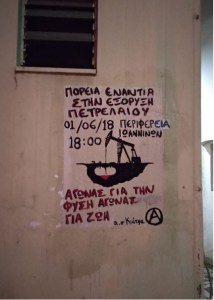 ΠΟΡΕΙΑ ΕΝΑΝΤΙΑ
ΣΤΗΝ ΕΞΟΡΥΞΗ
ΠΕΤΡΕΛΑΙΟΥ
01/06/18 ΠΕΡΙΦΕΡΕΙΑ
ΙΩΑΝΝΙΝΩΝ
18:00
ΑΓΩΝΑΣ ΓΙΑ ΤΗΝ
ΦΥΣΗ ΑΓΩΝΑΣ
ΓΙΑ ΖΩΗ